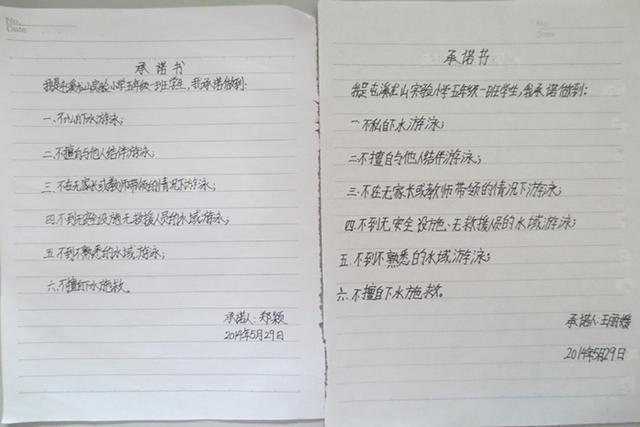 No.
Date
承诺书
我是屯溪龙山实验小学五年级一班学生,我承诺做到:
一.不私自下水游泳;
二.不擅自与他人结伴游泳;
三.不在无家长或教师带领的情况下游泳;
四.不到无安全设施、无救援人员的水域游泳;
五.不到不熟悉的水域游泳;
六.不擅自下水施救。
承诺人:郑颖
2014年5月29日
No.
Date
承诺书
我是屯溪龙山实验小学五年级一班学生,我承诺做到:
一.不私自下水游泳;
二.不擅自与他人结伴游泳;
三.不在无家长或教师带领的情况下游泳;
四.不到无安全设施、无救援人员的水域游泳;
五.不到不熟悉的水域游泳;
六.不擅自下水施救。
承诺人:王雨媛
2014年5月29日